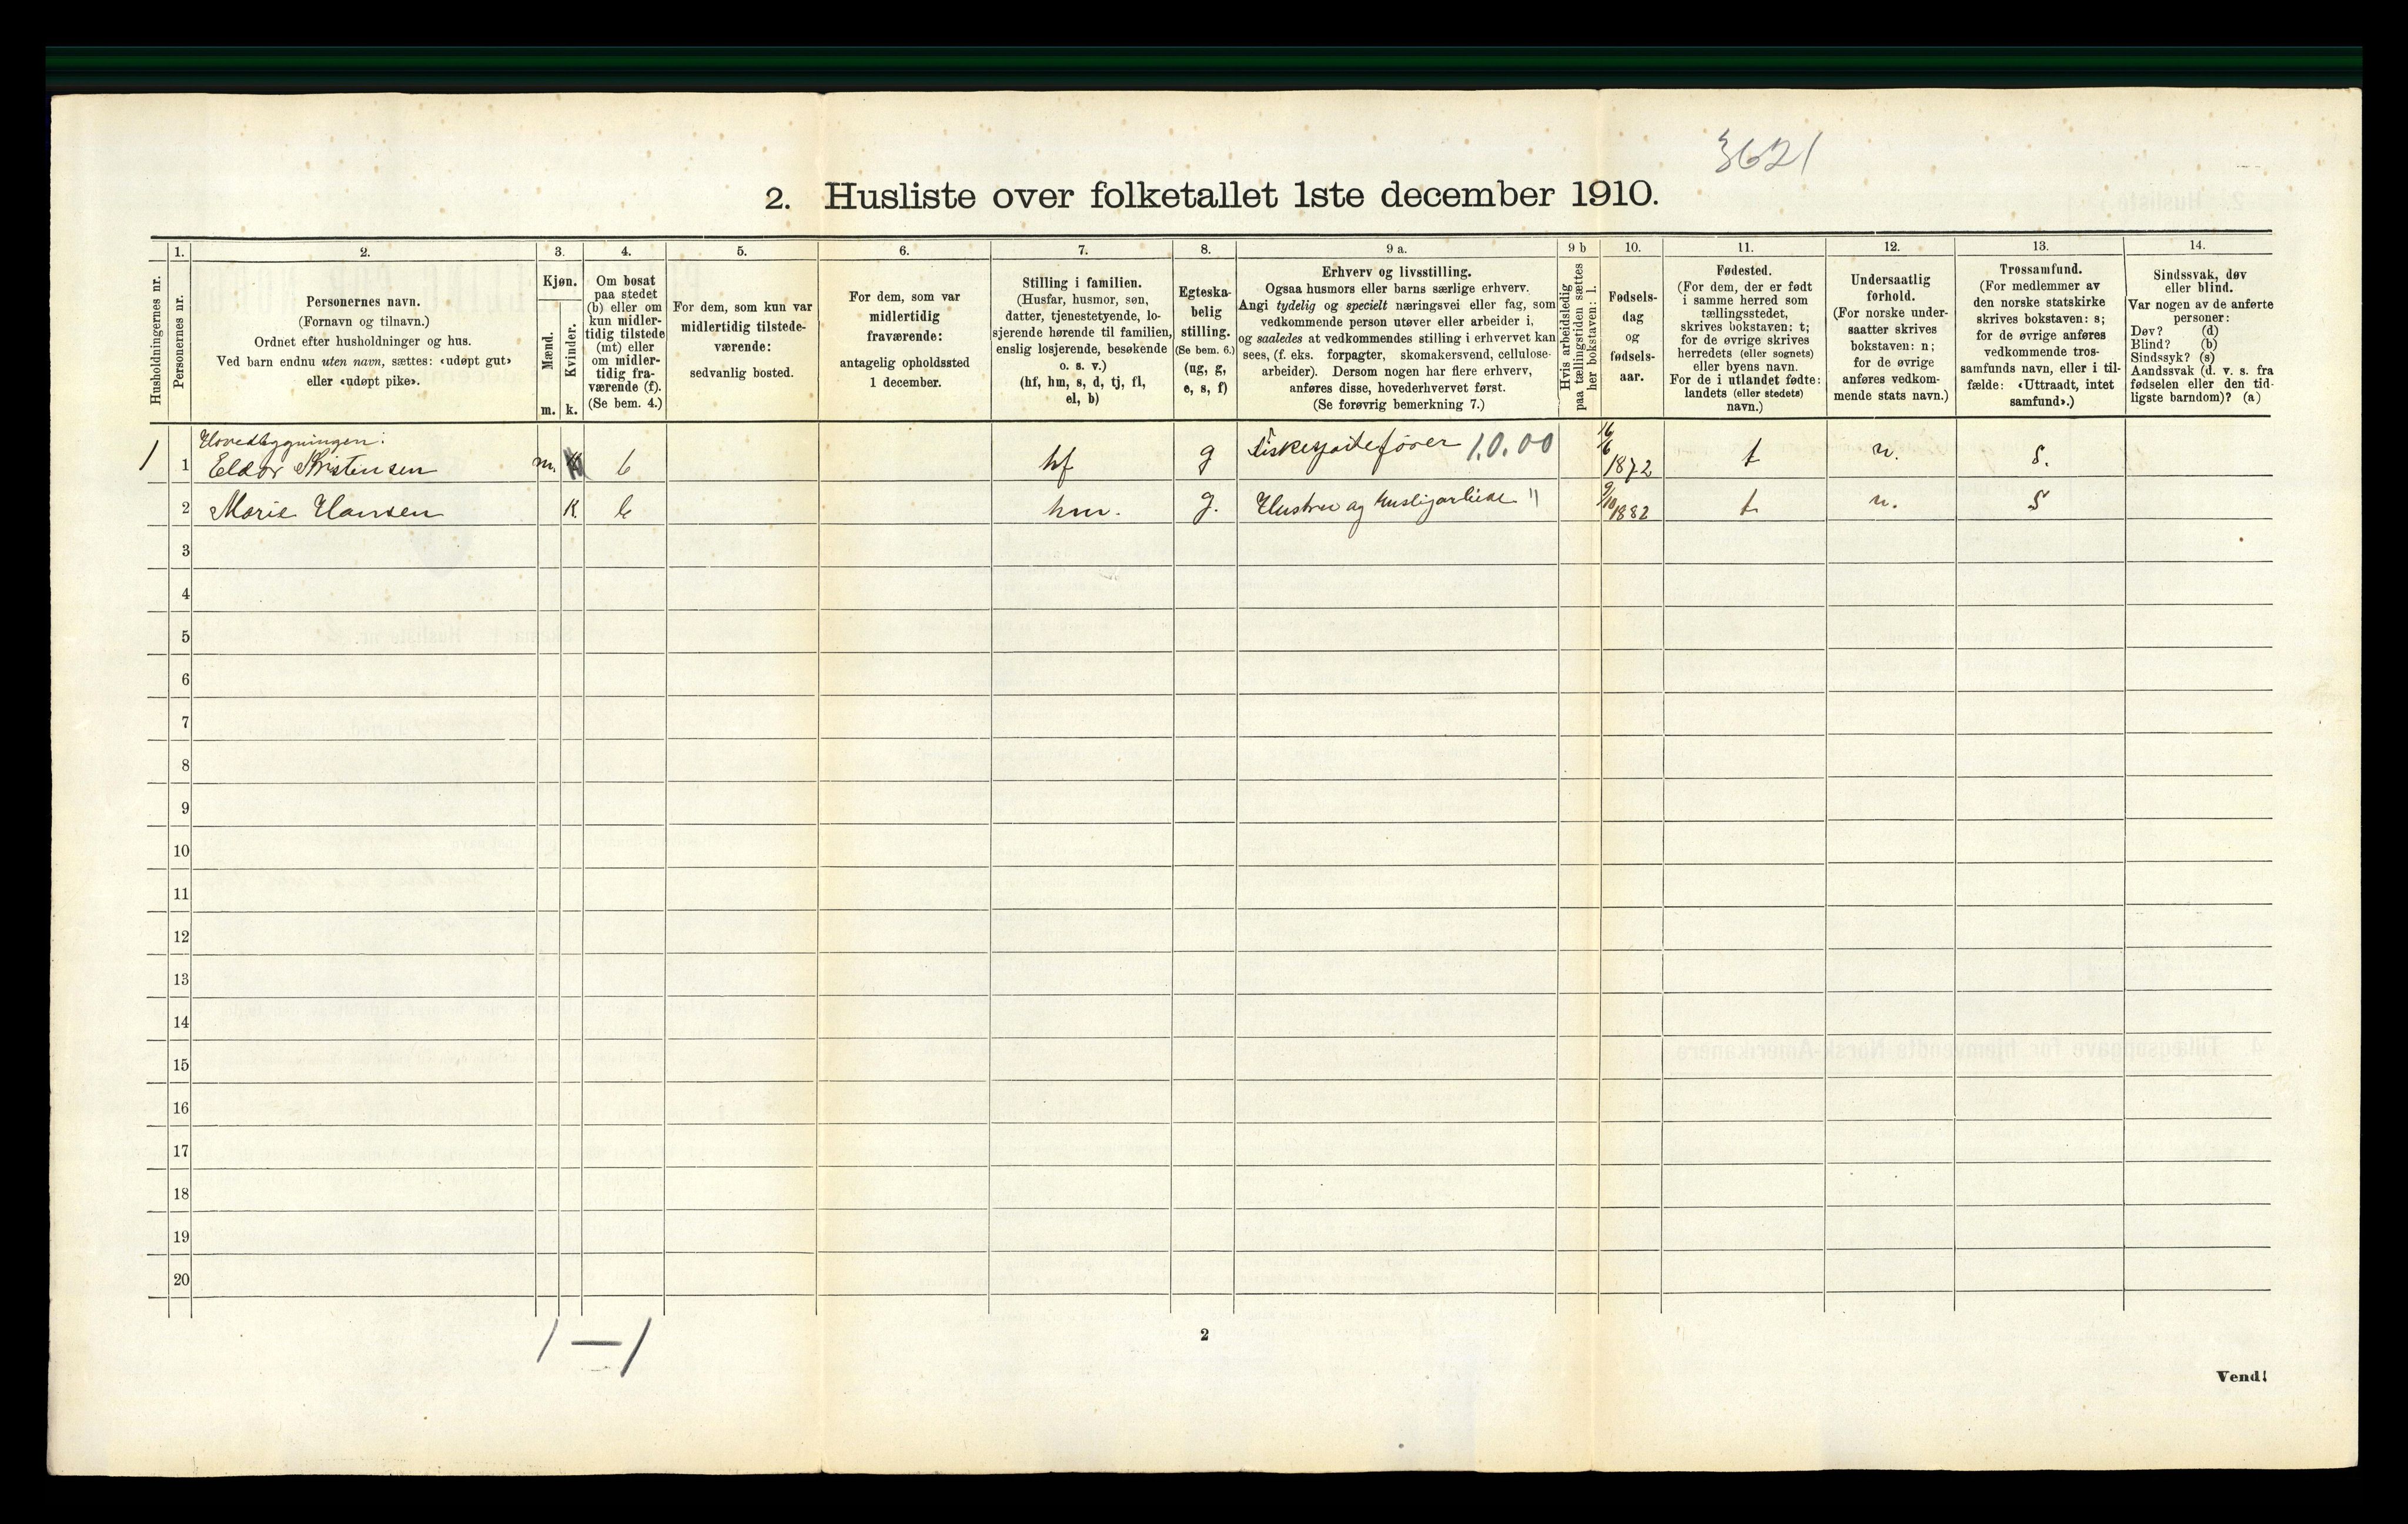 3621
2. Husliste over folketallet 1ste december 1910.
Husholdningernes nr.
1.
Personernes nr.
2.
Personernes navn.
(Fornavn og tilnavn.)
Ordnet efter husholdninger og hus.
Ved barn endnu uten navn, sættes: «udøpt gut»
eller «udøpt pike».
3.
Kjøn.
Mænd.
Kvinder.
m. k.
4.
Om bosat
paa stedet
(b) eller om
kun midler-
tidig tilstede
(mt) eller
om midler-
tidig fra-
værende (f).
(Se bem. 4.)
5.
For dem, som kun var
midlertidig tilstede-
værende:
sedvanlig bosted.
6.
For dem, som var
midlertidig
fraværende:
antagelig opholdssted
1 december.
7.
Stilling i familien.
(Husfar, husmor, søn,
datter, tjenestetyende, lo-
sjerende hørende til familien,
enslig losjerende, besøkende
o. s. v.)
(hf, hm, s, d, tj, fl,
el, b)
8.
Egteska-
belig
stilling.
(Se bem. 6.)
(ug, g,
e, s, f)
9 a.
Erhverv og livsstilling.
Ogsaa husmors eller barns særlige erhverv.
Angi tydelig og specielt næringsvei eller fag, som
vedkommende person utøver eller arbeider i,
og saaledes at vedkommendes stilling i erhvervet kan
sees, (f. eks. forpagter, skomakersvend, cellulose-
arbeider). Dersom nogen har flere erhverv,
anføres disse, hovederhvervet først.
(Se forøvrig bemerkning 7.)
9 b
Hvis arbeidsledig
paa tællingstiden sættes
her bokstaven: l.
10.
Fødsels-
dag
og
fødsels-
aar.
11.
Fødested.
(For dem, der er født
i samme herred som
tællingsstedet,
skrives bokstaven: t;
for de øvrige skrives
herredets (eller sognets)
eller byens navn.
For de i utlandet fødte:
landets (eller stedets)
navn.)
12.
Undersaatlig
forhold.
(For norske under-
saatter skrives
bokstaven: n;
for de øvrige
anføres vedkom-
mende stats navn.)
13.
Trossamfund.
(For medlemmer av
den norske statskirke
skrives bokstaven: s;
for de øvrige anføres
vedkommende tros-
samfunds navn, eller i til-
fælde: «Uttraadt, intet
samfund».)
14.
Sindssvak, døv
eller blind.
Var nogen av de anførte
personer:
Døv? (d)
Blind? (b)
Sindssyk? (s)
Aandssvak (d. v. s. fra
fødselen eller den tid-
ligste barndom)? (a)
Hovedbygningen:
1 1 Eldor Kristensen m. b hf g 10.00 16/6 1872 t n. s.
2 Marie Hansen K. b hm. g. Hustru og husligarbeide " 9/10 1882 t n. s
3
4
5
6
7
8
9
10
11
12
13
14
15
16
17
18
19
20
1 — 1
2
Vend!